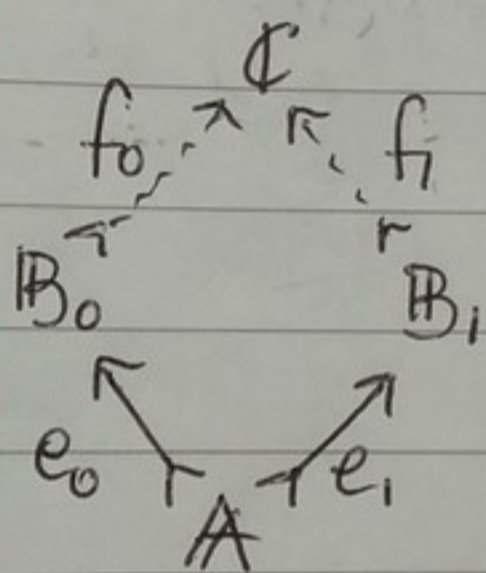 ℂ
f₀ f₁
𝔹₀ 𝔹₁
e₀ e₁
𝔸